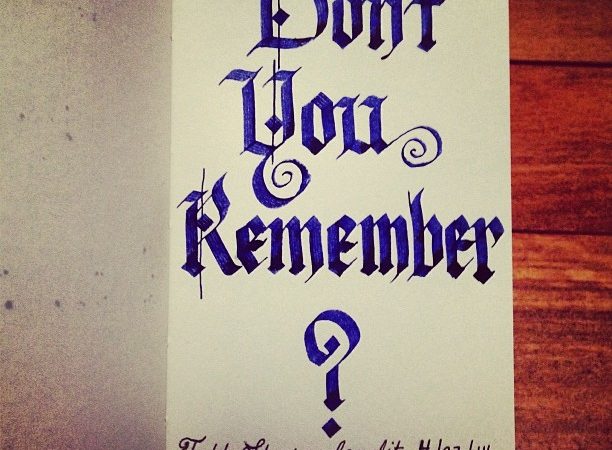 Dont
You
Remember
?